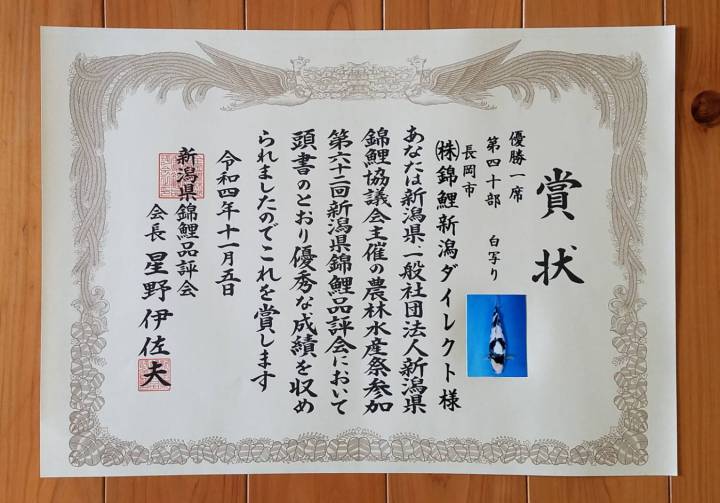 賞状
優勝一席
第四十部 白写り
長岡市
㈱錦鯉新潟ダイレクト様
あなたは新潟県、一般社団法人新潟県
錦鯉協議会主催の農林水産祭参加
第六十二回新潟県錦鯉品評会において
頭書のとおり優秀な成績を収め
られましたのでこれを賞します
令和四年十一月五日
新潟県錦鯉品評会
会長 星野伊佐夫